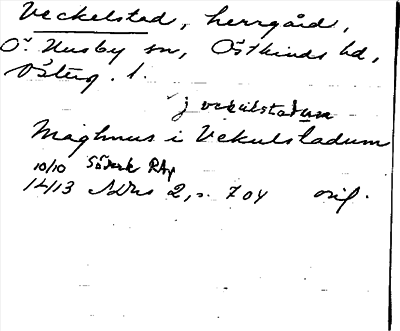 Veckelstad, herrgård,
Ö. Husby sn, Östkinds hd,
Östg. l.
j vekulstadum
Maghnus i Vekulstadum
10/10 Söderk RAp
14/13 NMs 2, s. 704 orig.